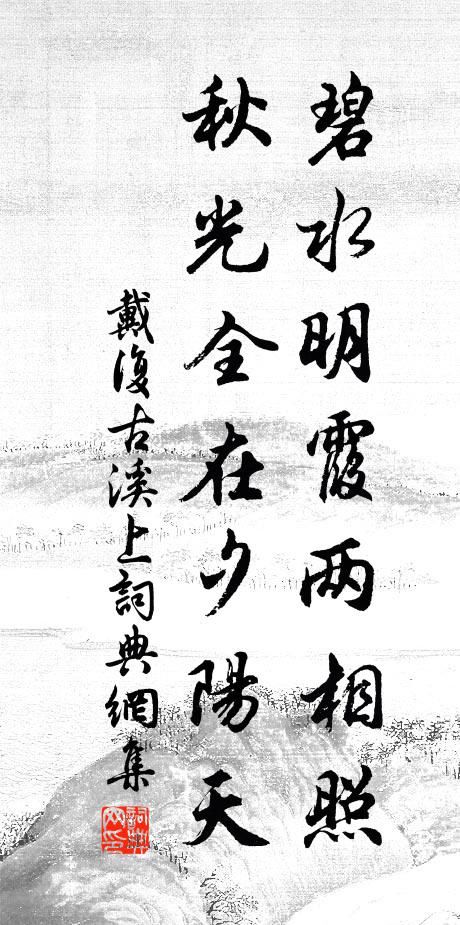 碧水明霞两相照
秋光全在夕陽天
戴復古溪上詞典網集
詞典网印